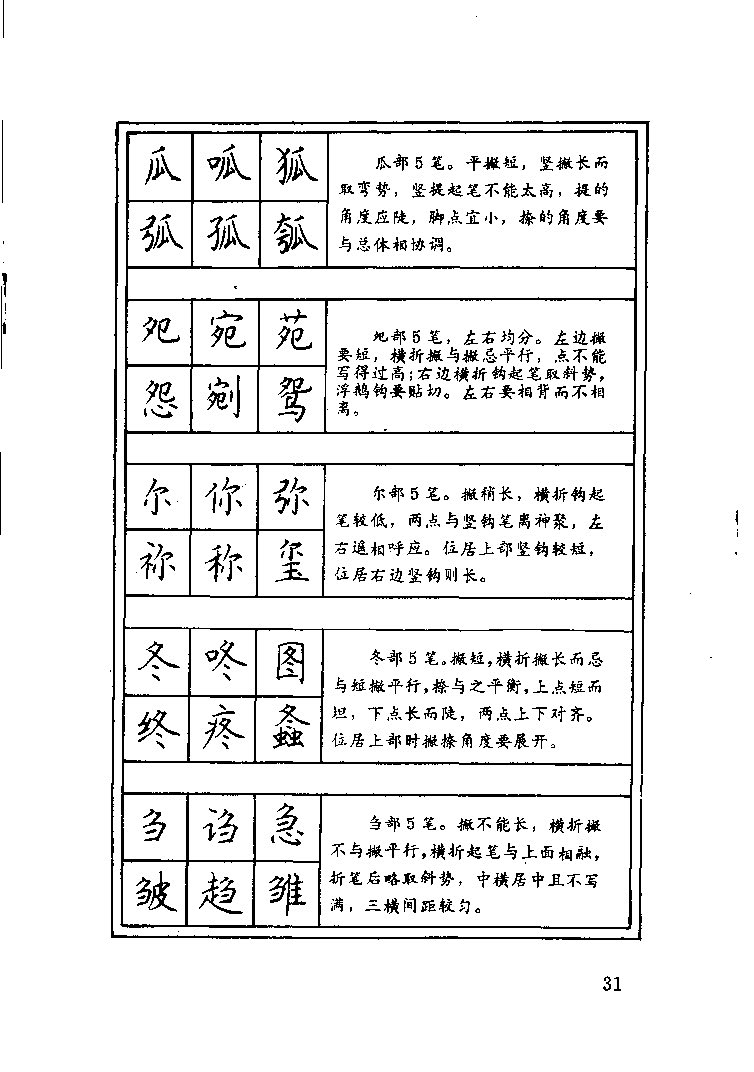 瓜 呱 狐
弧 孤 瓠
瓜部5笔。平撇短，竖撇长而
取弯势，竖提起笔不能太高，提的
角度应陡，脚点宜小，捺的角度要
与总体相协调。
夗 宛 苑
怨 剜 鸳
夗部5笔，左右均分。左边撇
要短，横折撇与撇忌平行，点不能
写得过高；右边横折钩起笔取斜势，
浮鹅钩要贴切。左右要相背而不相
离。
尔 你 弥
祢 称 玺
尔部5笔。撇稍长，横折钩起
笔较低，两点与竖钩笔离神聚，左
右遥相呼应。位居上部竖钩较短，
位居右边竖钩则长。
冬 咚 图
终 疼 螽
冬部5笔。撇短，横折撇长而忌
与短撇平行，捺与之平衡，上点短而
坦，下点长而陡，两点上下对齐。
位居上部时撇捺角度要展开。
刍 诌 急
皱 趋 雏
刍部5笔。撇不能长，横折撇
不与撇平行，横折起笔与上面相融，
折笔后略取斜势，中横居中且不写
满，三横间距较匀。
31